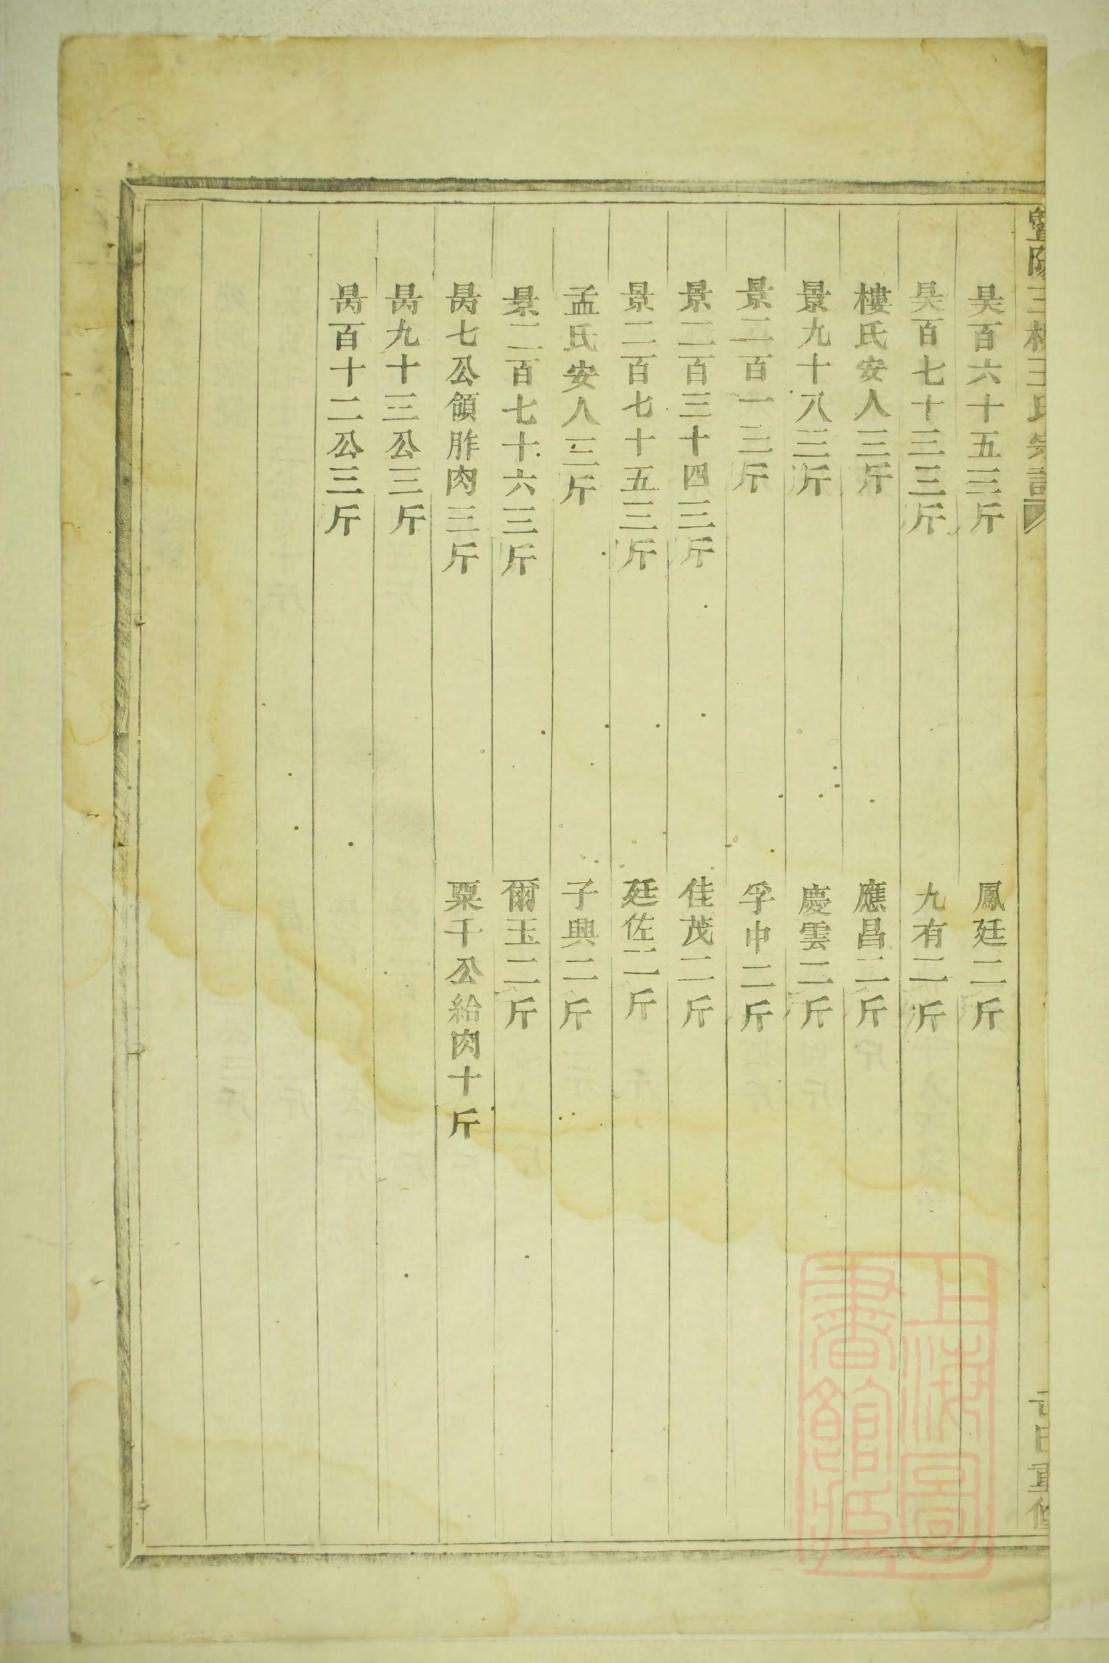 昊百六十五三斤　鳳廷二斤
昊百七十三三斤　九有二斤
樓氏安人三斤　應昌二斤
景九十八三斤　慶雲二斤
景二百一三斤　孚中二斤
景二百三十四三斤　佳茂二斤
景二百七十五三斤　廷佐二斤
孟氏安人三斤　子興二斤
景二百七十六三斤　爾玉二斤
昺七公領胙肉三斤　粟千公給肉十斤
昺九十三公三斤
昺百十二公三斤
上海圖
書館藏